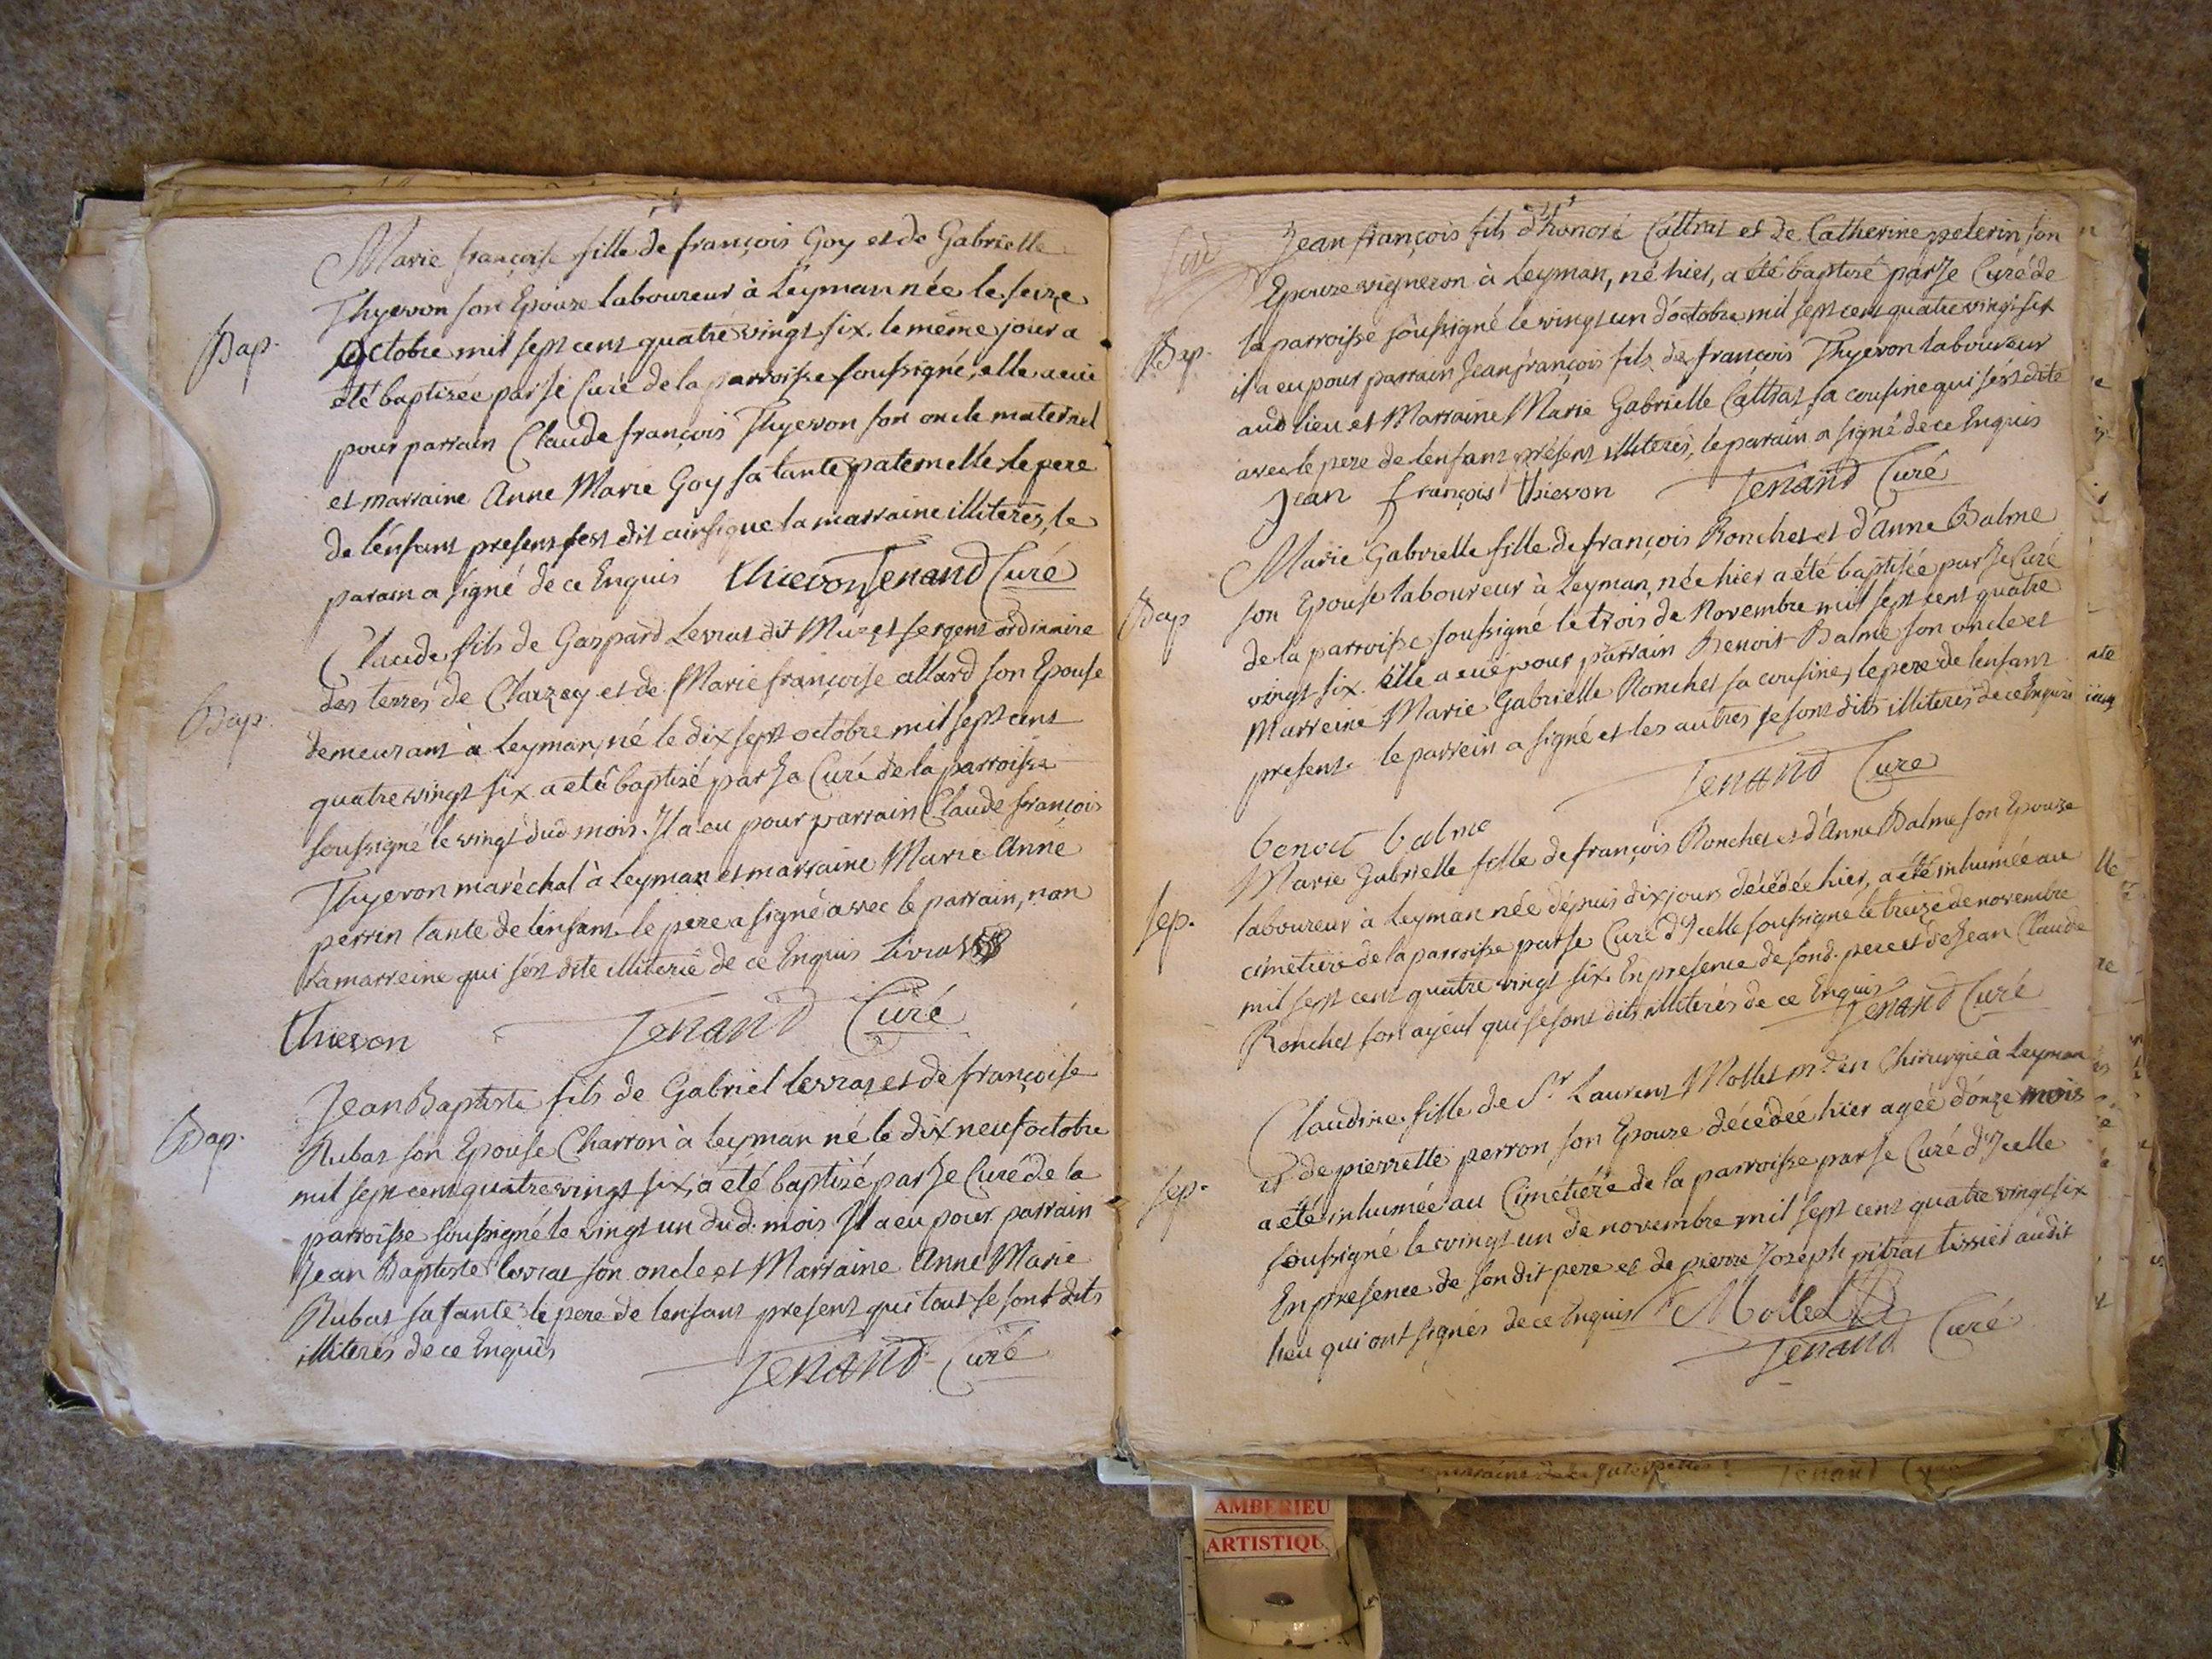 Marie françoise fille de françois Goy et de Gabrielle
Thyevon son Epouze laboureur à Leyman née le seize
Bap. Octobre mil sept cent quatre vingt six. le même jour a
été baptizée par Je Curé de la parroisse soussigné, elle a eue
pour parrain Claude françois Thyevon son oncle maternel
et marraine Anne Marie Goy sa tante paternelle le pere
de lenfant present sest dit ainsi que la marraine illiteres, le
parain a signé de ce Enquis thievon Tenand Curé
Claude fils de Gaspard Levrat dit Muzet sergent ordinaire
des terres de Chazey et de Marie françoise allard son Epouse
Bap. demeurant à Leyman, né le dix sept octobre mil sept cent
quatre vingt six a été baptizé par Je Curé de la parroisse
soussigné le vingt dud mois. Il a eu pour parrain Claude françois
Thyevon maréchal à Leyman et marraine Marie Anne
perrin tante de lenfant. le pere a signé avec le parrain, non
la marreine qui s'est dite illiterée de ce Enquis Livrat
thievon Tenand Curé
Jean Baptiste fils de Gabriel levrat et de françoise
Bap. Rubat son Epouse Charron à Leyman né le dix neuf octobre
mil sept cent quatre vingt six, a été baptizé par Je Curé de la
parroisse soussigné le vingt un dud. mois Il a eu pour parrain
Jean Baptiste levrat son oncle et Marraine Anne Marie
Rubat sa tante le pere de lenfant present qui tous se sont dits
illiterés de ce Enquis
Tenand Curé
Jean françois fils d'honoré Cattras et de Catherine pelerin son
Epouze vigneron à Leyman, né hier, a été baptizé par Je Curé de
Bap. la parroisse soussigné le vingt un d'octobre mil sept cent quatre vingt six
il a eu pour parrain Jean françois fils de françois Thyevon laboureur
aud lieu et Marraine Marie Gabrielle Cattras sa cousine qui s'est dite
avec le pere de lenfant présent illiterés, le parain a signé de ce Enquis
Jean françois thievon Tenand Curé
Marie Gabrielle fille de françois Ronchet et d'Anne Balme
Bap son Epouse laboureur à Leyman, née hier a été baptisée par Je Curé
de la parroisse soussigné le trois de Novembre mil sept cent quatre
vingt six. Elle a eue pour parrain Benoit Balme son oncle et
Marreine Marie Gabrielle Ronchet sa cousine, le pere de lenfant
present. le parrein a signé et les autres se sont dits illiterés de ce Enquis
Tenand Curé
benoit balme
Marie Gabrielle fille de françois Ronchet et d'Anne Balme son Epouze
Sep. laboureur à Leyman née dépuis dix jours décédée hier, a été inhumée au
cimetiere de la parroisse par Je Curé d'Icelle soussigné le treize de novembre
mil sept cent quatre vingt six. En presence de sond. pere et de Jean Claude
Ronchet son ayeul qui se sont dits illiterés de ce Enquis Tenand Curé
Claudine fille de Sr Laurent Mollet md en Chirurgie à Leyman
et de pierrette perron son Epouze décédée hier agée d'onze mois
Sep. a été inhumée au Cimétiére de la parroisse par Je Curé d'Icelle
soussigné le vingt un de novembre mil sept cent quatre vingt six
En presence de son dit pere et de pierre Joseph pitrat tissier au dit
lieu qui ont signés de ce Enquis Mollet
Tenand Curé
Tenand
AMBERIEU
ARTISTIQU